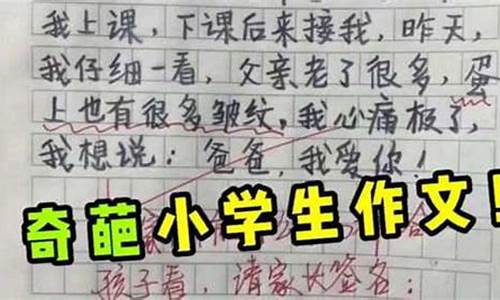 我上课，下课后来接我，昨天，
我仔细一看，父亲老了很多，蛋
上也有很多皱纹，我心痛极了，
我想说：爸爸，我爱你！
奇葩小学生作文！
孩子看，请家长签名：